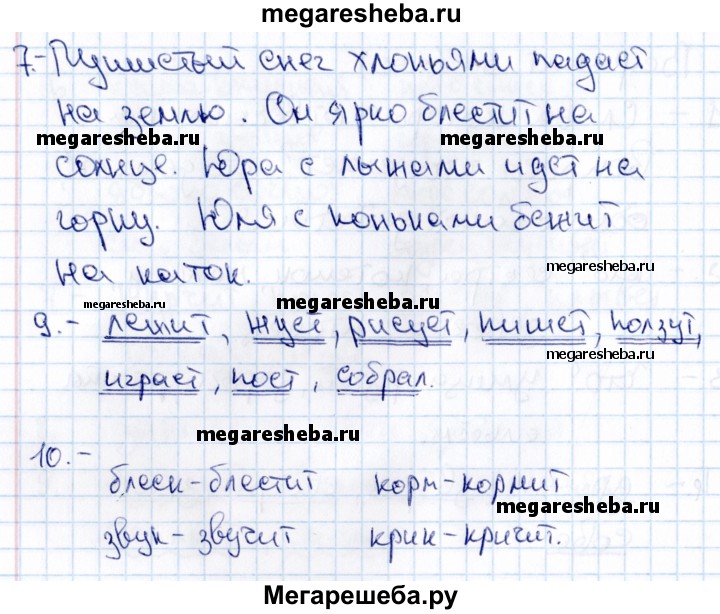 megaresheba.ru
7.- Пушистый снег хлопьями падает
на землю. Он ярко блестит на
megaresheba.ru
megaresheba.ru
солнце. Юра с лыжами идет на
горку. Юля с коньками бежит
на каток.
megaresheba.ru
megaresheba.ru
megaresheba.ru
9.- лежит, жует, рисует, пишет, ползут,
megaresheba.ru
играет, поет, собрал.
megaresheba.ru
10.-
блеск-блестит корм-кормит
megaresheba.ru
звук-звучит крик-кричит.
Мегарешеба.ру